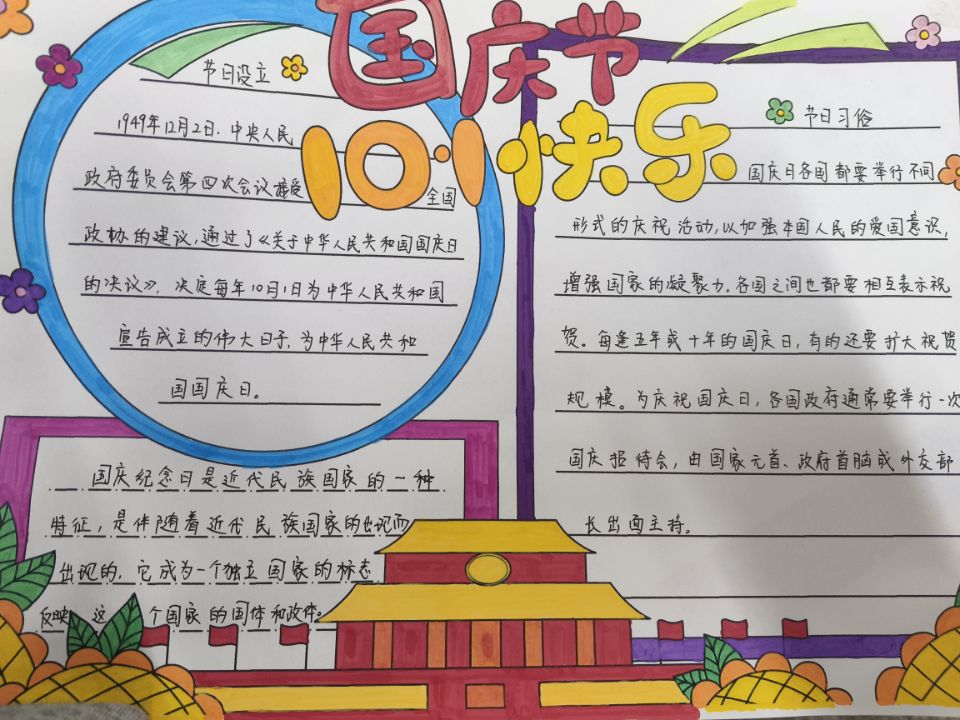 国庆节
10·1快乐
节日设立
1949年12月2日，中央人民
政府委员会第四次会议接受全国
政协的建议，通过了《关于中华人民共和国国庆日
的决议》，决定每年10月1日为中华人民共和国
宣告成立的伟大日子，为中华人民共和
国国庆日。
国庆纪念日是近代民族国家的一种
特征，是伴随着近代民族国家的出现而
出现的，它成为一个独立国家的标志
反映这个国家的国体和政体。
节日习俗
国庆日各国都要举行不同
形式的庆祝活动，以加强本国人民的爱国意识，
增强国家的凝聚力，各国之间也都要相互表示祝
贺。每逢五年或十年的国庆日，有的还要扩大祝贺
规模。为庆祝国庆日，各国政府通常要举行一次
国庆招待会，由国家元首、政府首脑或外交部
长出面主持。